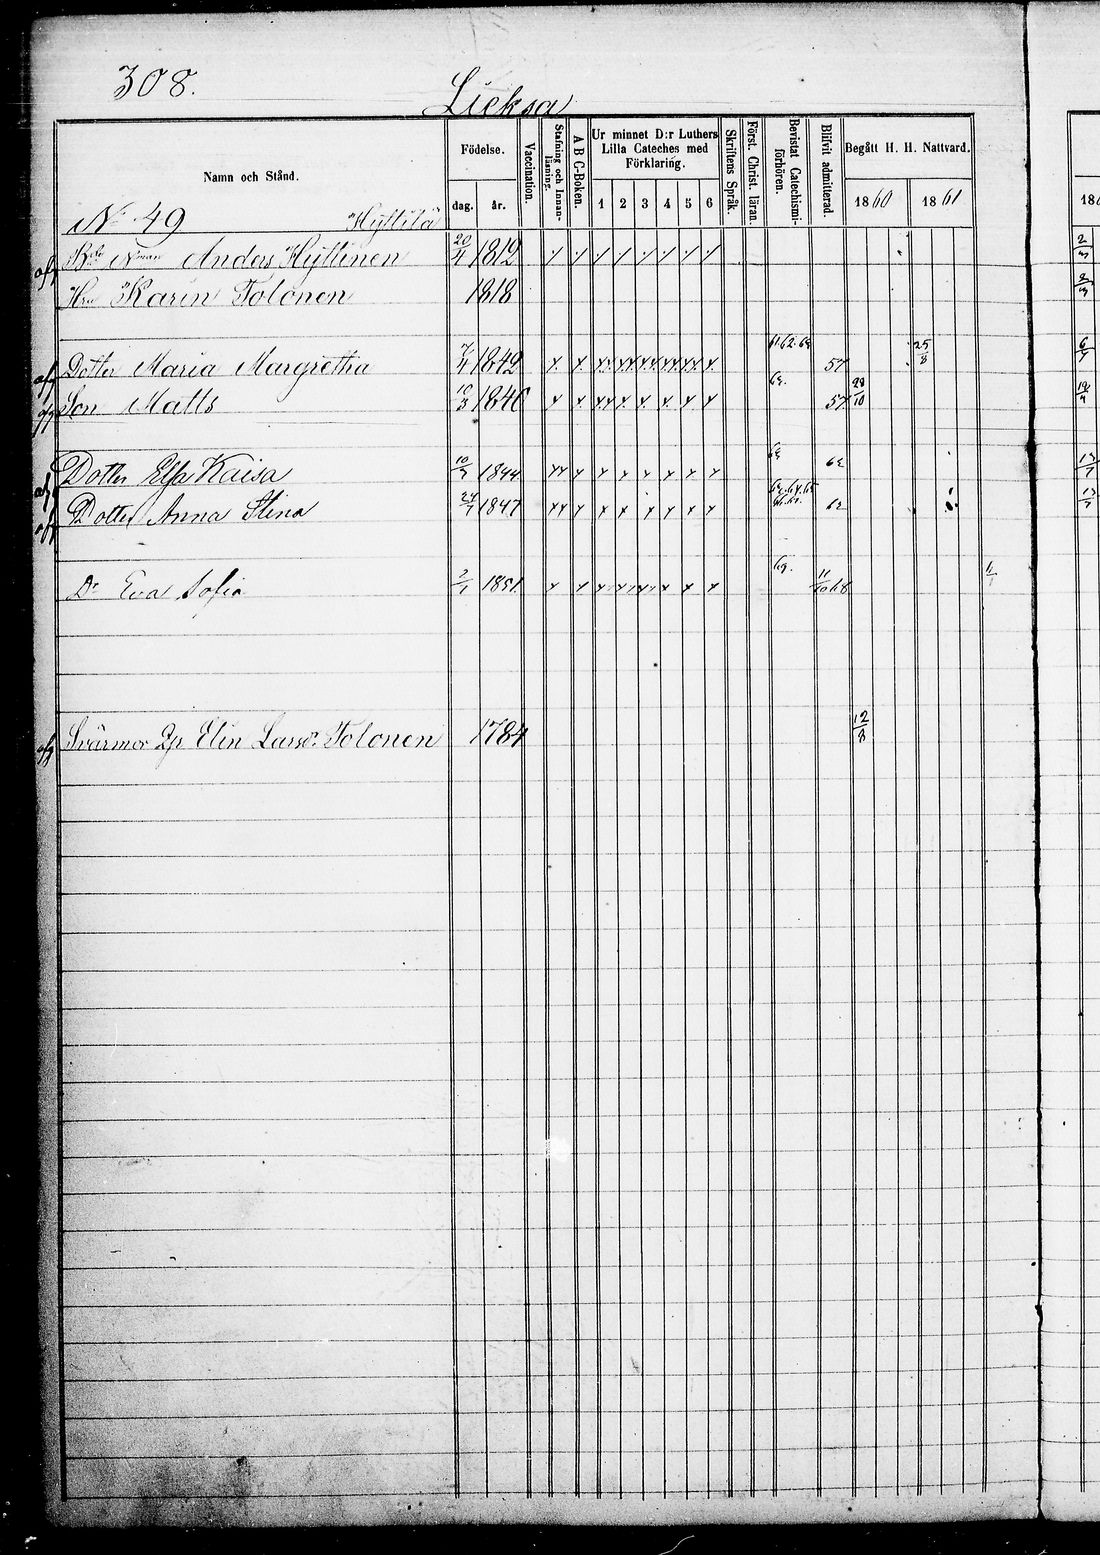 308.
Lieksa
Namn och Stånd.
Födelse.
dag.
år.
Vaccination.
Stafning och Innanläsning.
A B C-Boken.
Ur minnet D:r Luthers Lilla Cateches med Förklaring.
1 2 3 4 5 6
Skriftens Språk.
Först. Christ. läran.
Bevistat Catechismiförhören.
Blifvit admitterad.
Begått H. H. Nattvard.
1860 1861
186
No 49 Hyttilä
Anders Hyttinen 20/4 1812
Karin Tolonen 1818
Dotter Maria Margretha 7/4 1842 61.62.63 57 25/8 6/7
Son Matts 10/3 1840 57 28/10
Dotter Elsa Kaisa 10/7 1844 62
Dotter Anna Stina 24/7 1847 62
Dr Eva Sofia 2/1 1851 69. 11/10 68
Svärmor Elin Larsdr Tolonen 1784 12/8